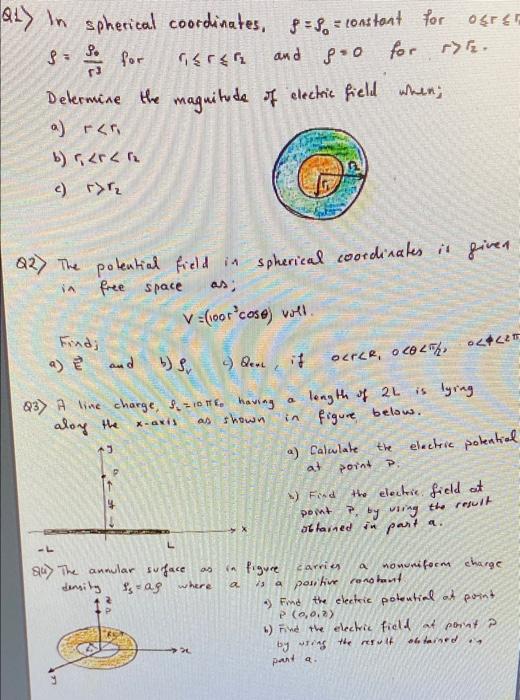 Q1) In spherical coordinates, ρ=ρ₀=constant for 0≤r≤r₁
ρ = ρ₀/r³ for r₁≤r≤r₂ and ρ=0 for r>r₂.
Determine the magnitude of electric field when;
a) r<r₁
b) r₁<r<r₂
c) r>r₂
r₂
r₁
Q2) The potential field in spherical coordinates is given
in free space as;
V=(100r³cosθ) volt.
Find;
a) E⃗ and b) ρᵥ c) Qenc, if 0<r<R, 0<θ<π/2, 0<ϕ<2π
Q3) A line charge, ρL=10πε₀ having a length of 2L is lying
along the x-axis as shown in figure below.
y
P
y
x
-L L
a) Calculate the electric potential
at point P.
b) Find the electric field at
point P, by using the result
obtained in part a.
Q4) The annular surface as in figure carries a nonuniform charge
density ρs=aρ where a is a positive constant
z
P
x
y
a) Find the electric potential at point
P(0,0,z)
b) Find the electric field at point P
by using the result obtained in
part a.